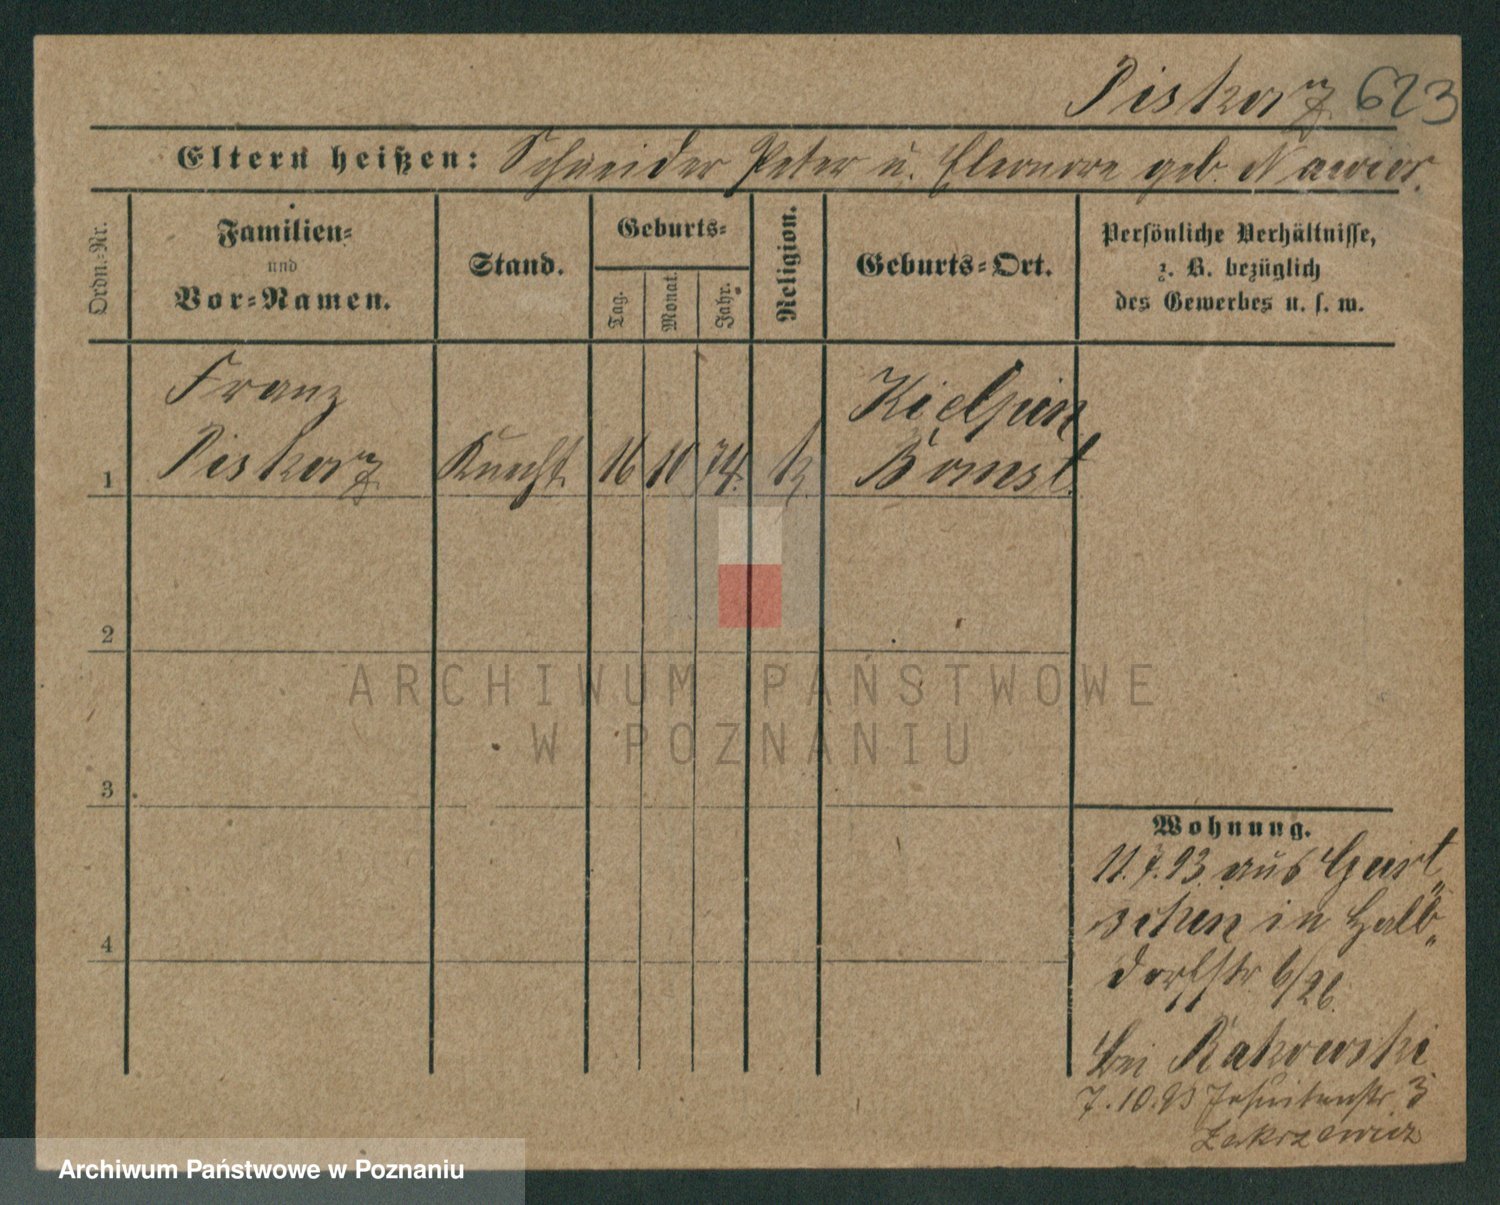 Piskorz 623
Eltern heißen: Schneider Peter u. Eleonore geb. Nawior.
Ordn.-Nr.
Familien-
und
Vor-Namen.
Stand.
Geburts-
Tag.
Monat.
Jahr.
Religion.
Geburts-Ort.
Persönliche Verhältnisse,
z. B. bezüglich
des Gewerbes u. s. w.
Franz
Kielpin
1 Piskorz Knecht 16 10 74. k. Bomst.
2
3
4
Wohnung.
11.7.93. aus
in Halb-
dorfstr 6/26.
bei Rakowski
7.10.93 Jesuitenstr 3
Zakrzewicz
ARCHIWUM PAŃSTWOWE
W POZNANIU
Archiwum Państwowe w Poznaniu